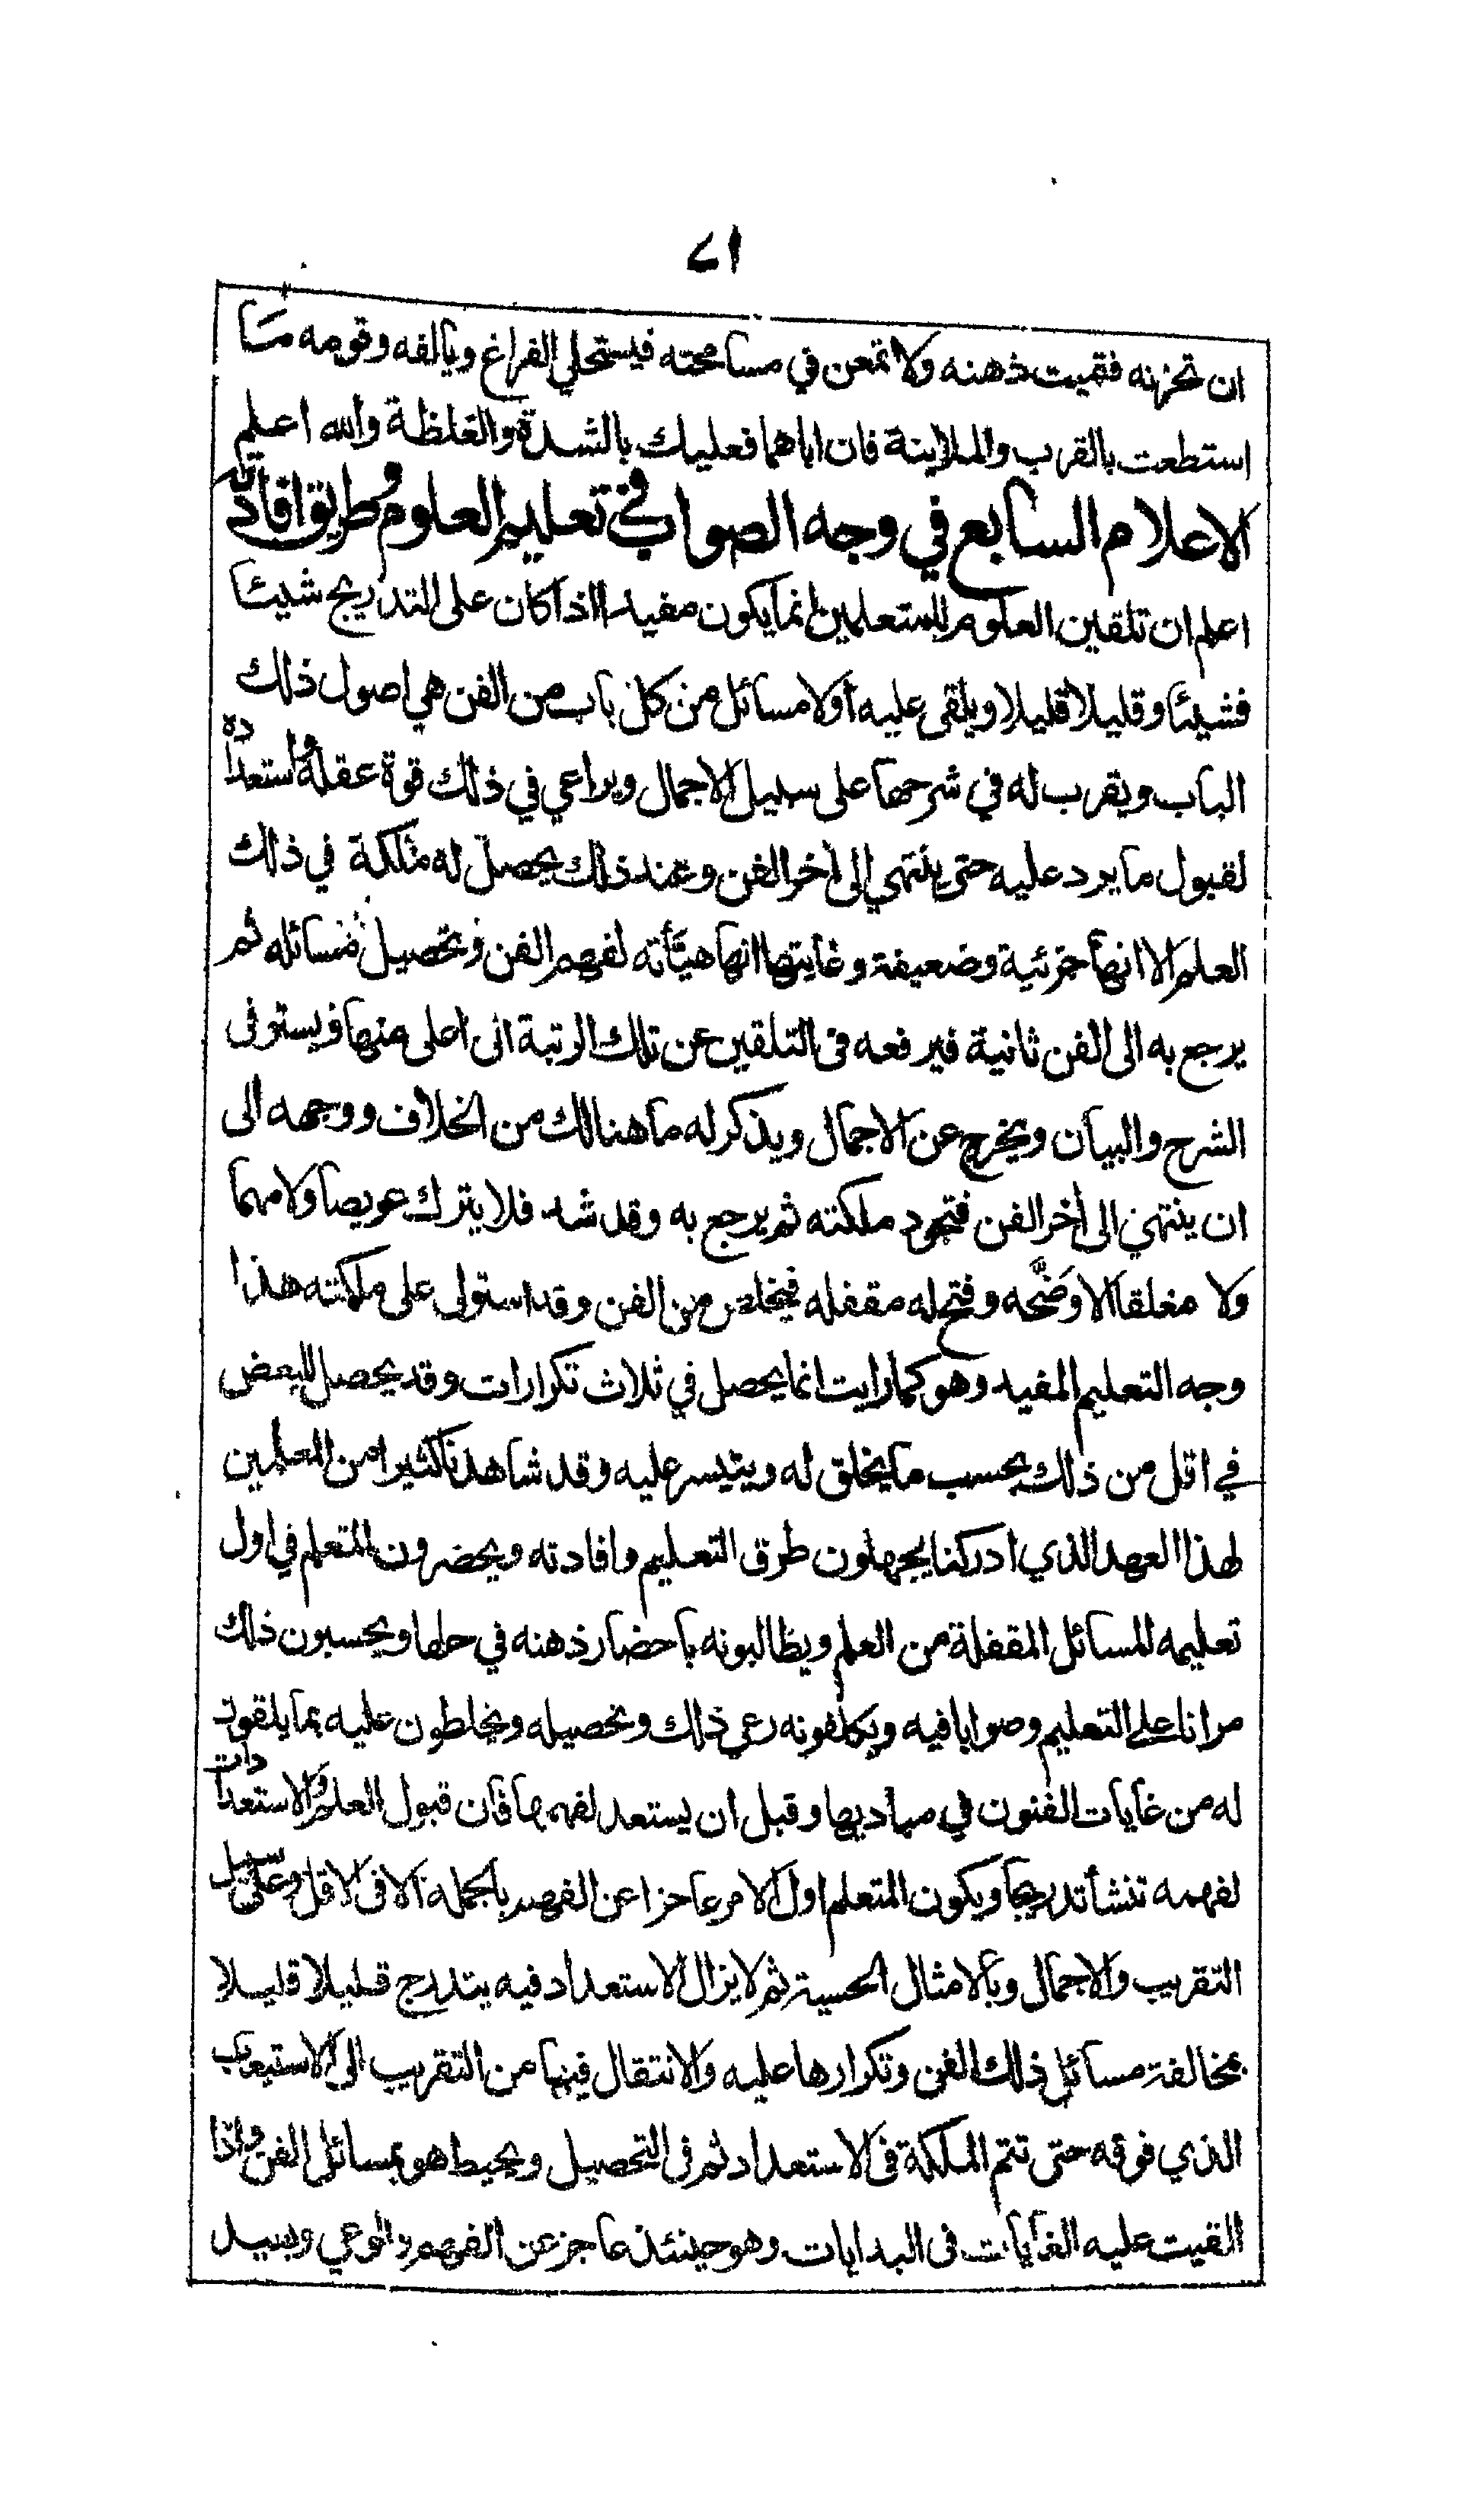 ٨١
ان تحزنه فتميت ذهنه ولا تمعن في مسامحته فيستحلي الفراغ ويألفه وقومه ما
استطعت بالقرب والملاينة فان اباهما فعليك بالشدة والغلظة والله اعلم
الاعلام السابع في وجه الصواب في تعليم العلوم وطريق افادته
اعلم ان تلقين العلوم للمتعلمين انما يكون مفيدا اذا كان على التدريج شيئا
فشيئا وقليلا قليلا ويلقى عليه أولا مسائل من كل باب من الفن هي اصول ذلك
الباب ويقرب له في شرحها على سبيل الاجمال ويراعي في ذلك قوة عقله واستعداده
لقبول ما يرد عليه حتى ينتهي إلى أخر الفن وعند ذلك يحصل له ملكة في ذلك
العلم الا انها جزئية وضعيفة وغايتها انها هيأته لفهم الفن وتحصيل مسائله ثم
يرجع به الى الفن ثانية فيرفعه في التلقين عن تلك الرتبة الى اعلى منها ويستوفى
الشرح والبيان ويخرج عن الاجمال ويذكر له ما هنالك من الخلاف ووجهه الى
ان ينتهي الى أخر الفن فتجود ملكته ثم يرجع به وقد شد فلا يترك عويصا ولا مهما
ولا مغلقا الا وضحه وفتح له مقفله فيخلص من الفن وقد استولى على ملكته هذا
وجه التعليم المفيد وهو كما رايت انما يحصل في ثلاث تكرارات وقد يحصل للبعض
في اقل من ذلك بحسب ما يخلق له ويتيسر عليه وقد شاهدنا كثيرا من المعلمين
لهذا العهد الذي ادركنا يجهلون طرق التعليم وافادته ويحضرون المتعلم في اول
تعليمه للمسائل المقفلة من العلم ويطالبونه بأحضار ذهنه في حلها ويحسبون ذلك
مرانا على التعليم وصوابا فيه ويكلفونه رعي ذلك وتحصيله ويخلطون عليه بما يلقون
له من غايات الفنون في مباديها وقبل ان يستعد لفهمها فان قبول العلم والاستعدادات
لفهمه تنشأ تدريجا ويكون المتعلم اول الامر عاجزا عن الفهم بالجملة الا في الاقل وعلى سبيل
التقريب والاجمال وبالامثال الحسية ثم لا يزال الاستعداد فيه يتدرج قليلا قليلا
بمخالفة مسائل ذلك الفن وتكرارها عليه والانتقال فيها من التقريب الى الاستيعاب
الذي فوقه حتى تتم الملكة في الاستعداد ثم في التحصيل ويحيط هو بمسائل الفن واذا
القيت عليه الغايات في البدايات وهو حينئذ عاجز عن الفهم والوعي وبعيد